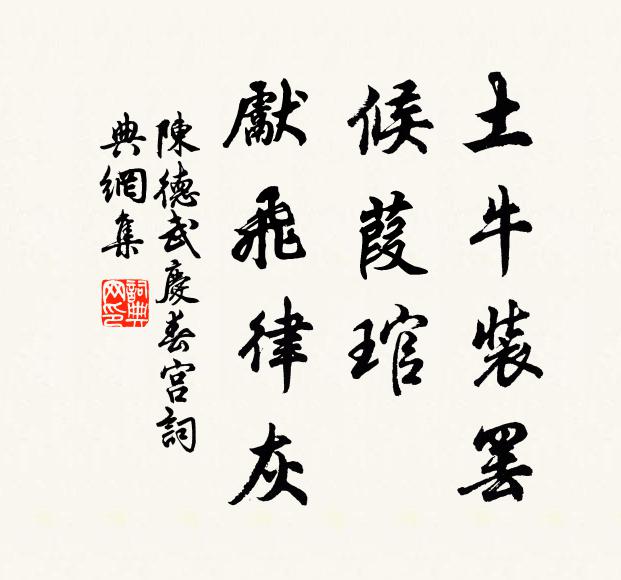 土牛裝罷
候葭琯
獻飛律灰
陳德武慶春宮詞
典網集
詞典网印